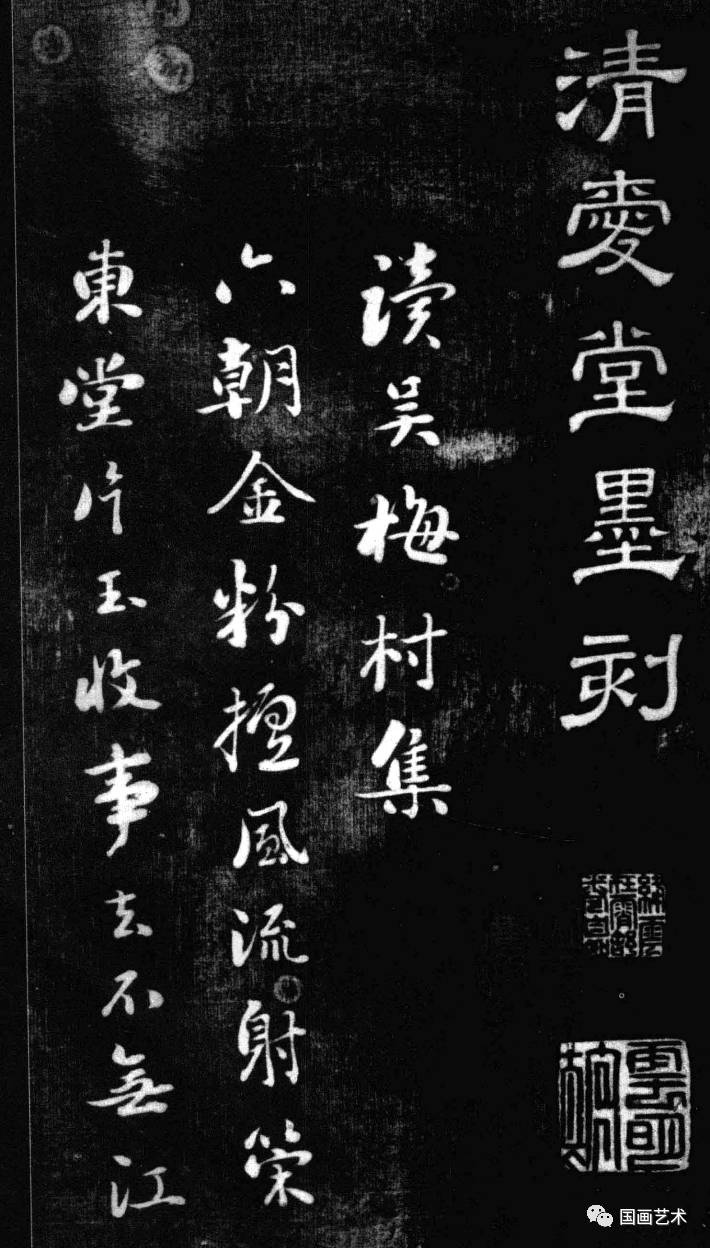 清愛堂墨刻
讀吴梅村集
六朝金粉擅風流射策
東堂片玉收事去不無江
国画艺术